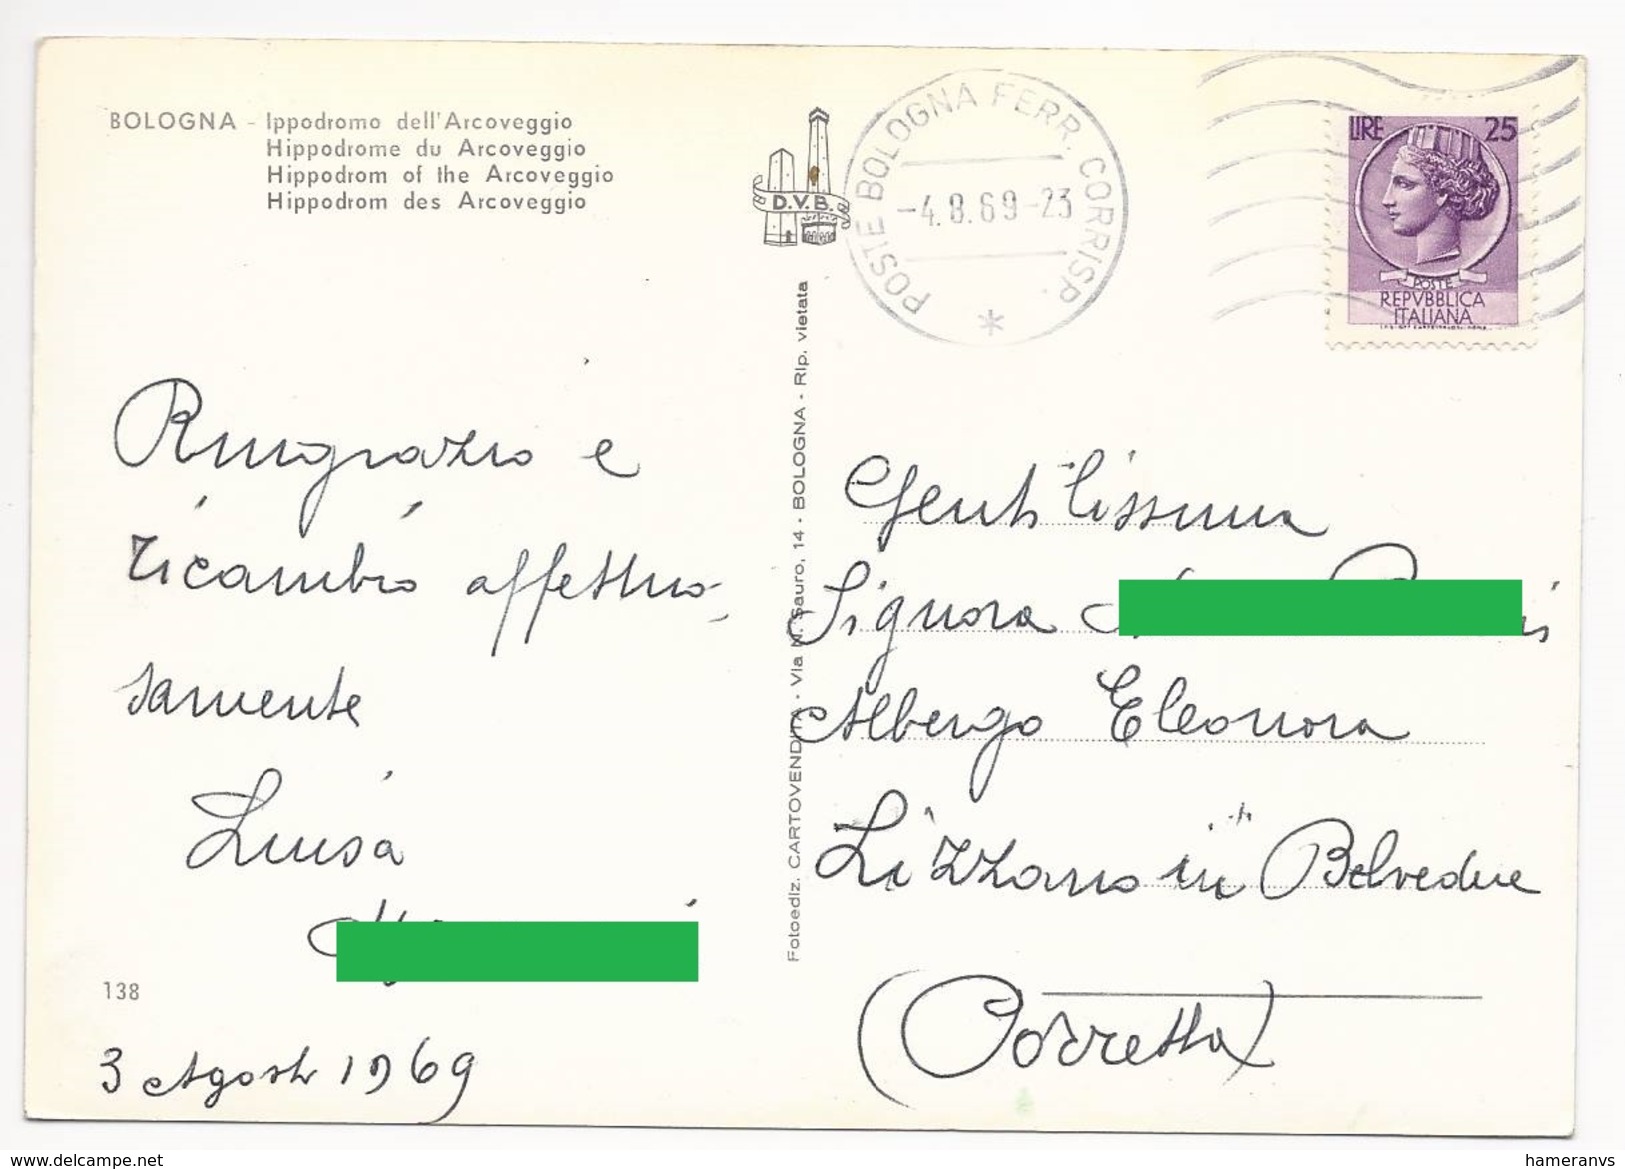 BOLOGNA - Ippodromo dell'Arcoveggio
Hippodrome du Arcoveggio
Hippodrom of the Arcoveggio
Hippodrom des Arcoveggio
D.V.B.
POSTE BOLOGNA FERR. CORRISP.
-4.8.69-23
LIRE 25
POSTE
REPVBBLICA
ITALIANA
Ringrazio e
ricambio affettuo-
samente
Luisa
138
3 Agosto 1969
Fotoediz. CARTOVENDITA - Via N. Sauro, 14 - BOLOGNA - Rip. vietata
Gentilissima
Signora
Albergo Eleonora
Lizzano in Belvedere
(Porretta)
www.delcampe.net
hameranvs